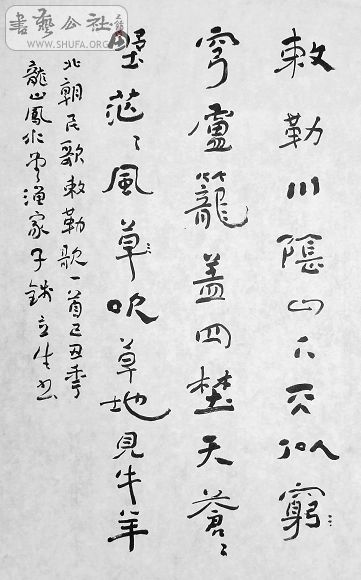 敕勒川陰山下天似窮
穹廬籠蓋四埜天蒼〻
茫〻風草吹草地見牛羊
北朝民歌敕勒歌一首己丑季
龍山鳳水漁家子錢立生書
書藝公社
WWW.SHUFA.ORG